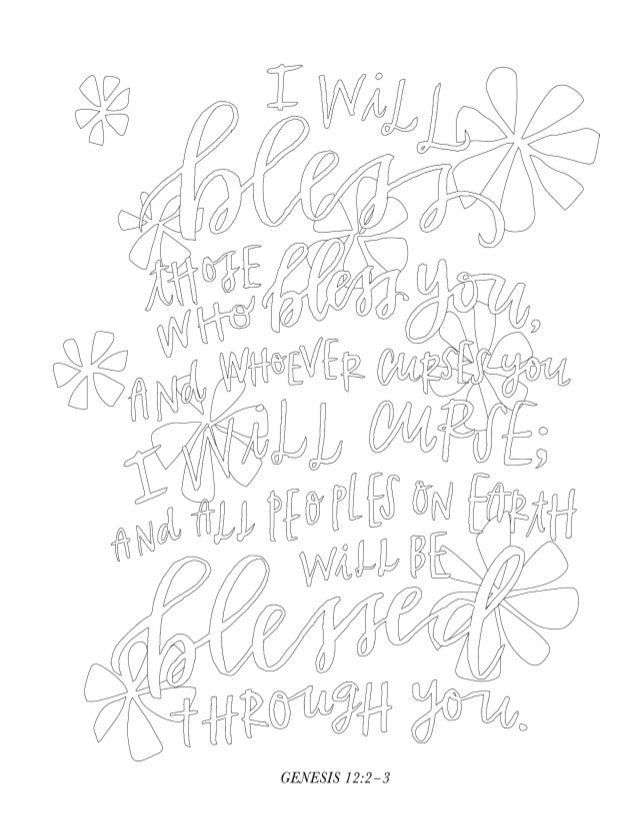 I WiLL
bless
tHOSE
WHO bless you,
ANd WHOEVER CURSES you
I WiLL CURSE;
ANd ALL PEOPLES ON EARtH
WiLL BE
blessed
tHROugH you.
GENESIS 12:2–3